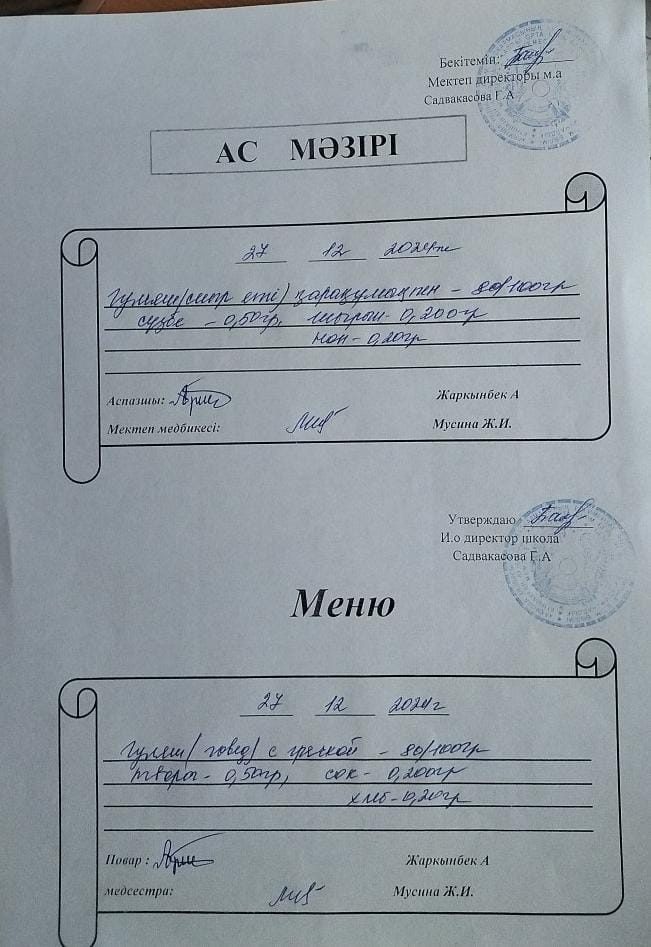 Бекітемін:
Мектеп директоры м.а
Садвакасова Г.А
АС МӘЗІРІ
27 12 2024ж
Гуляш(сиыр еті) қарақұмықпен - 80/100гр
сүзбе - 0,50гр, шырын - 0,200гр
нан - 0,20гр
Аспазшы: Жаркынбек А
Мектеп медбикесі: Мусина Ж.И.
Утверждаю
И.о директор школа
Садвакасова Г.А
Меню
27 12 2024г
Гуляш( говяд) с гречкой - 80/100гр
творог - 0,50гр, сок - 0,200гр
хлеб - 0,20гр
Повар : Жаркынбек А
медсестра: Мусина Ж.И.